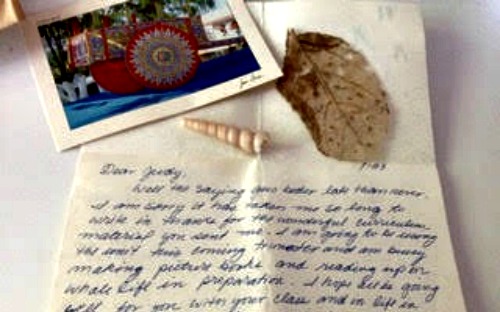 Dear Judy,
Well the saying goes better late than never.
I am sorry it has taken me so long to
write in thanks for the wonderful curriculum
material you sent me. I am going to be using
the unit this coming trimester and am busy
making picture books and reading up on
whale life in preparation. I hope life is going
well for you with your class and in life in